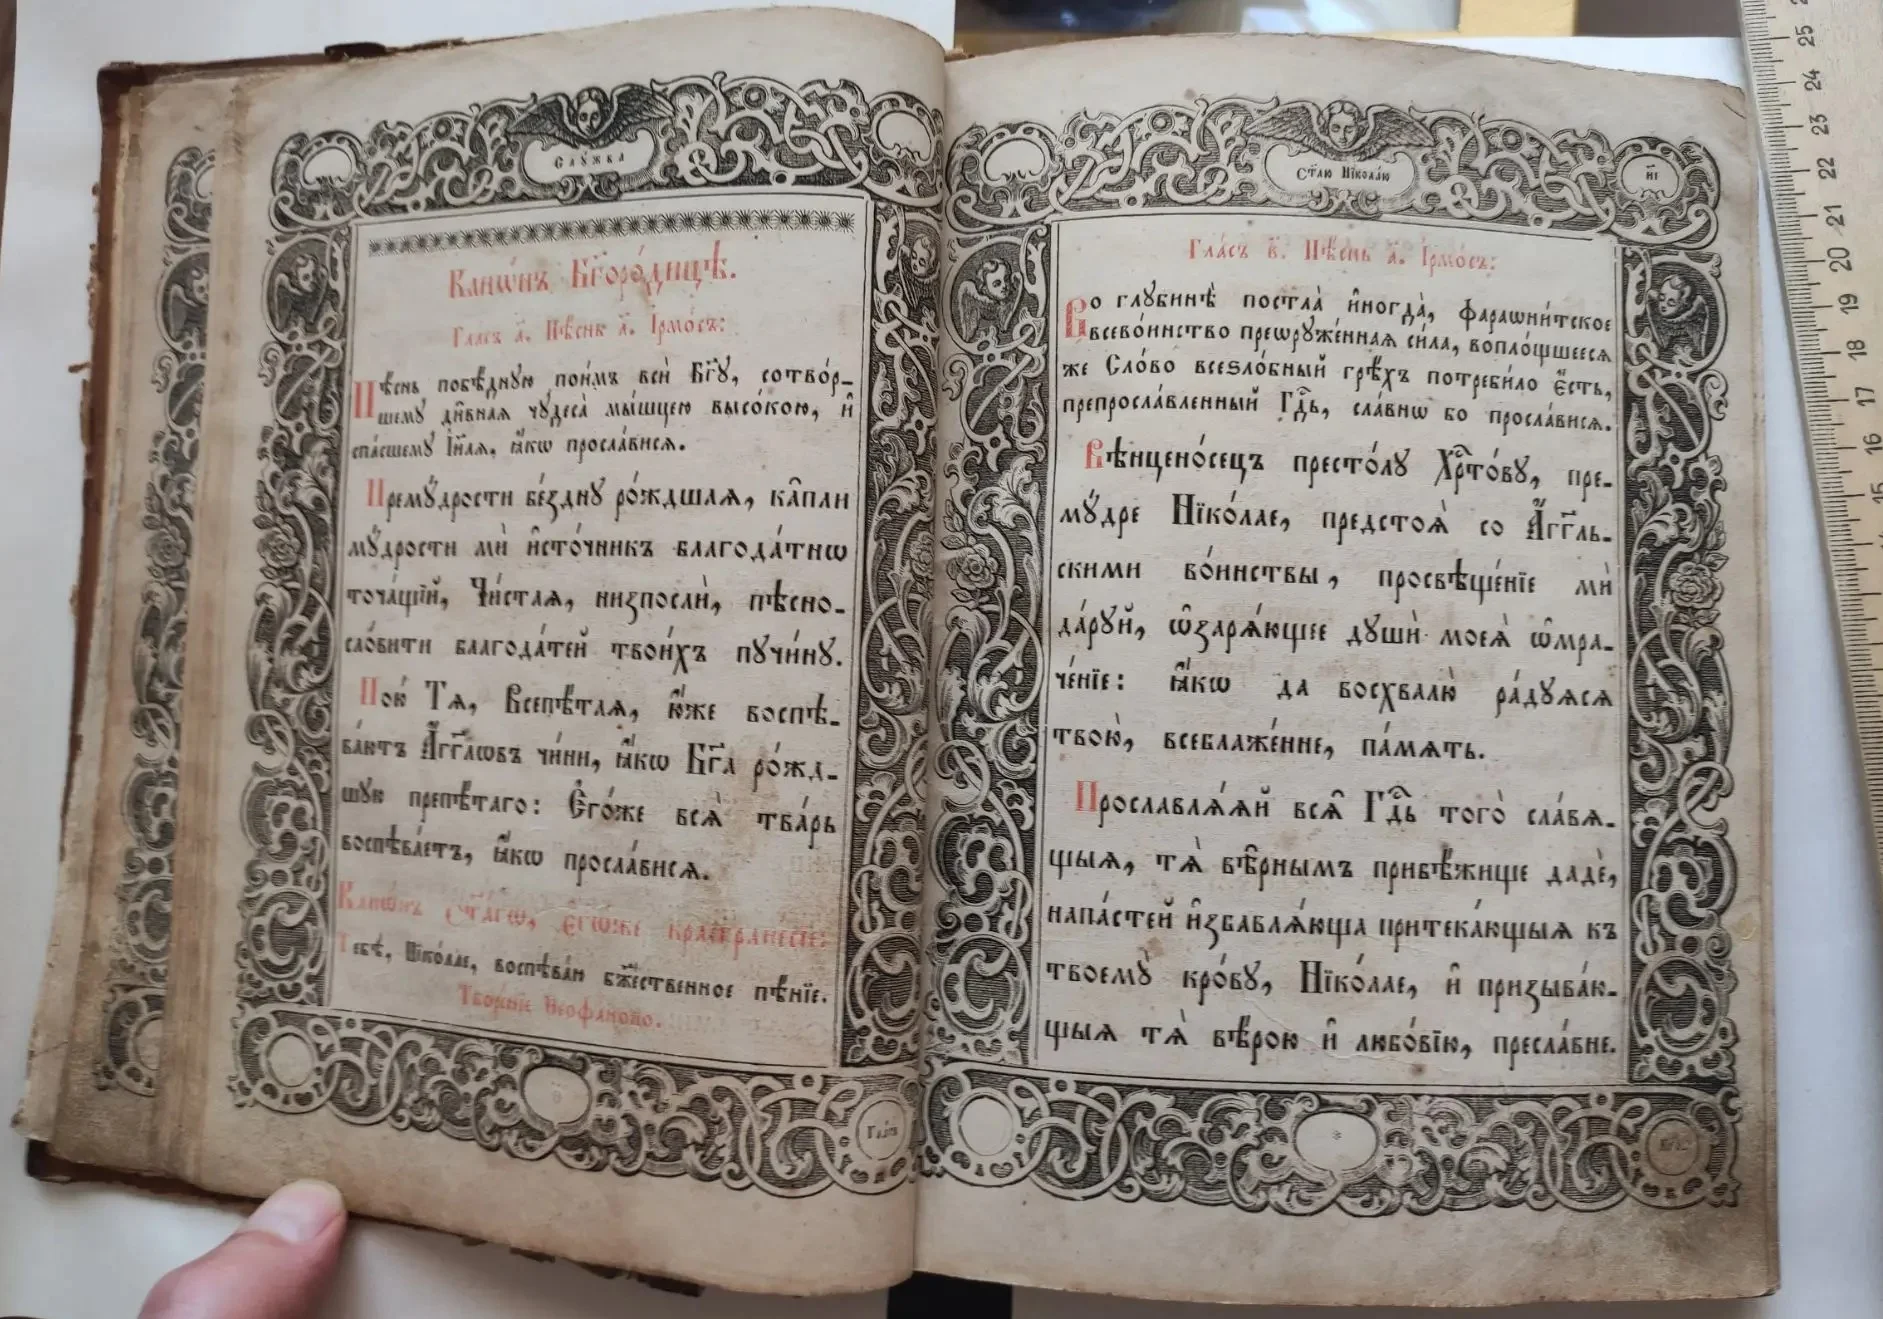 Слꙋ́жба
Канѡ́нъ Бг҃оро́дицѣ.
Гла́съ а҃. Пѣ́снь а҃. І҆рмо́съ:
Пѣ́снь побѣ́днꙋю пои́мъ вси̑ Бг҃ꙋ, сотво́р-
шемꙋ ди̑вная чꙋдеса̀ мы́шцею высо́кою, и҆
спа́сшемꙋ І҆и҃ля, ꙗ҆́кѡ просла́вися.
Премꙋ́дрости бе́зднꙋ ро́ждшая, ка̑пли
мꙋ́дрости мѝ и҆сто́чникъ благода́тнѡ
точа́щїй, Чи́стая, низпослѝ, пѣсно-
сло́вити благода́тей твои́хъ пꙋчи́нꙋ.
Пою́ Тя̀, Всепѣ́тая, ю҆́же воспѣ-
ва́ютъ А҆́гг҃лѡвъ чи́ни, ꙗ҆́кѡ Бг҃а ро́жд-
шꙋю препѣ́таго: Є҆го́же вся̀ тва́рь
воспѣва́етъ, ꙗ҆́кѡ просла́вися.
Канѡ́нъ Ст҃а́гѡ, є҆гѡ́же краегране́сїе:
Тебѣ̀, Нїко́лае, воспѣва́ю бж҃е́ственное пѣ́нїе.
Творе́нїе Ѳеофа́ново.
Гла́съ
Ст҃лю Нїкола́ю
н҃і
Гла́съ в҃. Пѣ́снь а҃. І҆рмо́съ:
Во глꙋбинѣ̀ постла̀ и҆ногда̀, фараѡни́тское
всево́инство преѡрꙋже́нная си́ла, вопло́щшееся
же Сло́во всеѕло́бный грѣ́хъ потреби́ло є҆́сть,
препросла́вленный Гд҇ь, сла́внѡ бо просла́вися.
Вѣнцено́сецъ престо́лꙋ Хр҇то́вꙋ, пре-
мꙋ́дре Нїко́лае, предстоя̀ со А҆́гг҃ль-
скими во́инствы, просвѣще́нїе мѝ
да́рꙋй, ѡ҆заря́ющее дꙋшѝ моея̀ ѡ҆мра-
че́нїе: ꙗ҆́кѡ да восхвалю̀ ра́дꙋяся
твою̀, всеблаже́нне, па́мять.
Прославля́яй вся̑ Гд҇ь того̀ сла́вя-
щыя, тя̀ вѣ̑рнымъ прибѣ́жище дадѐ,
напа́стей и҆збавля́юща притека́ющыя къ
твоемꙋ̀ кро́вꙋ, Нїко́лае, и҆ призыва́ю-
щыя тя̀ вѣ́рою и҆ любо́вїю, пресла́вне.
25
24
23
22
21
20
19
18
17
16
15